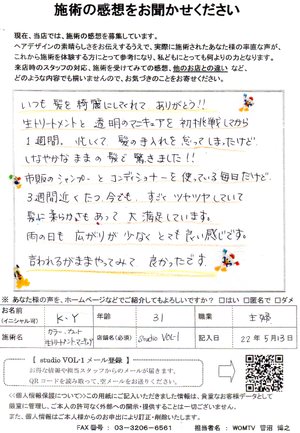 施術の感想をお聞かせください
現在、当店では、施術の感想を募集しています。
ヘアデザインの素晴らしさをお伝えするうえで、実際に施術されたあなた様の率直な声が、
これから施術を体験する方にとって参考になり、私どもにとっても何よりの力となります。
来店時のスタッフの対応、施術を受けてみての感想、他のお店との違い など、
どのような内容でも構いませんので、お気づきのことをお寄せください。
いつも 髪を 綺麗にしてくれて ありがとう!!
生トリートメントと 透明のマニキュアを 初挑戦してから
1週間、忙しくて 髪の手入れを 怠ってしまったけど、
しなやかなままの髪で 驚きました!!
市販のシャンプーと コンディショナーを 使っている毎日だけど
3週間近くたつ今でも、すごく ツヤツヤしていて
髪に柔らかさもあって 大満足しています。
雨の日も 広がりが 少なく とても 良い感じです。
言われるがままやってみて 良かったです。
※ あなた様の声を、ホームページなどでご紹介してもよろしいですか? □はい □匿名で □ダメ
お名前
(イニシャル可)
K・Y
年齢
31
職業
主婦
施術名
カラー、カット
生トリートメント マニキュア
店舗名(必須)
Studio VOL-1
記入日
22年 5月13日
【 studio VOL-1 メール登録 】
お得な情報や担当スタッフからのメールが届きます。
QRコードを読み取って、空メールをお送りください。
<<個人情報保護について>>この用紙にご記入いただきました情報は、貴重なお客様データとして
厳重に管理し、ご本人の許可なく外部への開示・提供することは一切ございません。
また、個人情報はご本人様からのお申出により訂正・削除いたします。
FAX番号 : 03-3206-6561
担当者名 : WOMTV 菅沼 博之